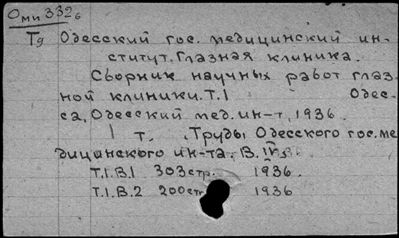 Оми 332б
Тg Одесский гос. медицинский ин-
ститут. Глазная клиника.
Сборник научных работ глаз-
ной клиники. Т. I Одес-
са, Одесский мед. ин-т, 1936.
1 т. Труды Одесского гос. ме
дицинского ин-та; В.
Т.I.В.1 303 стр. 1936.
Т.I.В.2 200 стр 1936